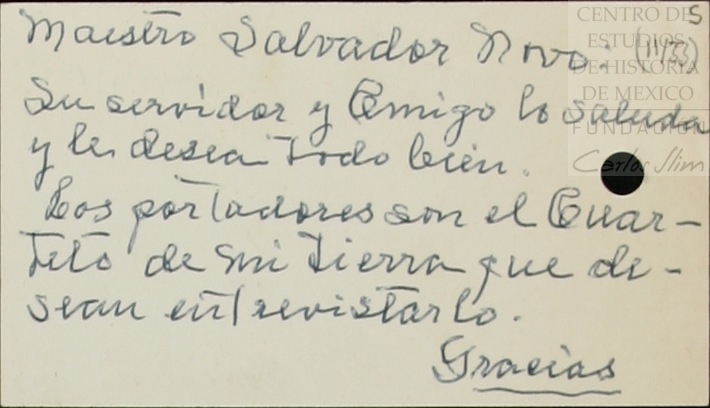 Maestro Salvador Novo: (11/53)
Su servidor y Amigo lo saluda
y le desea todo bién.
Los portadores son el Cuar-
teto de mi tierra que de-
sean entrevistarlo.
Gracias
CENTRO DE
ESTUDIOS
DE HISTORIA
DE MEXICO
FUNDACIÓN
Carlos Slim